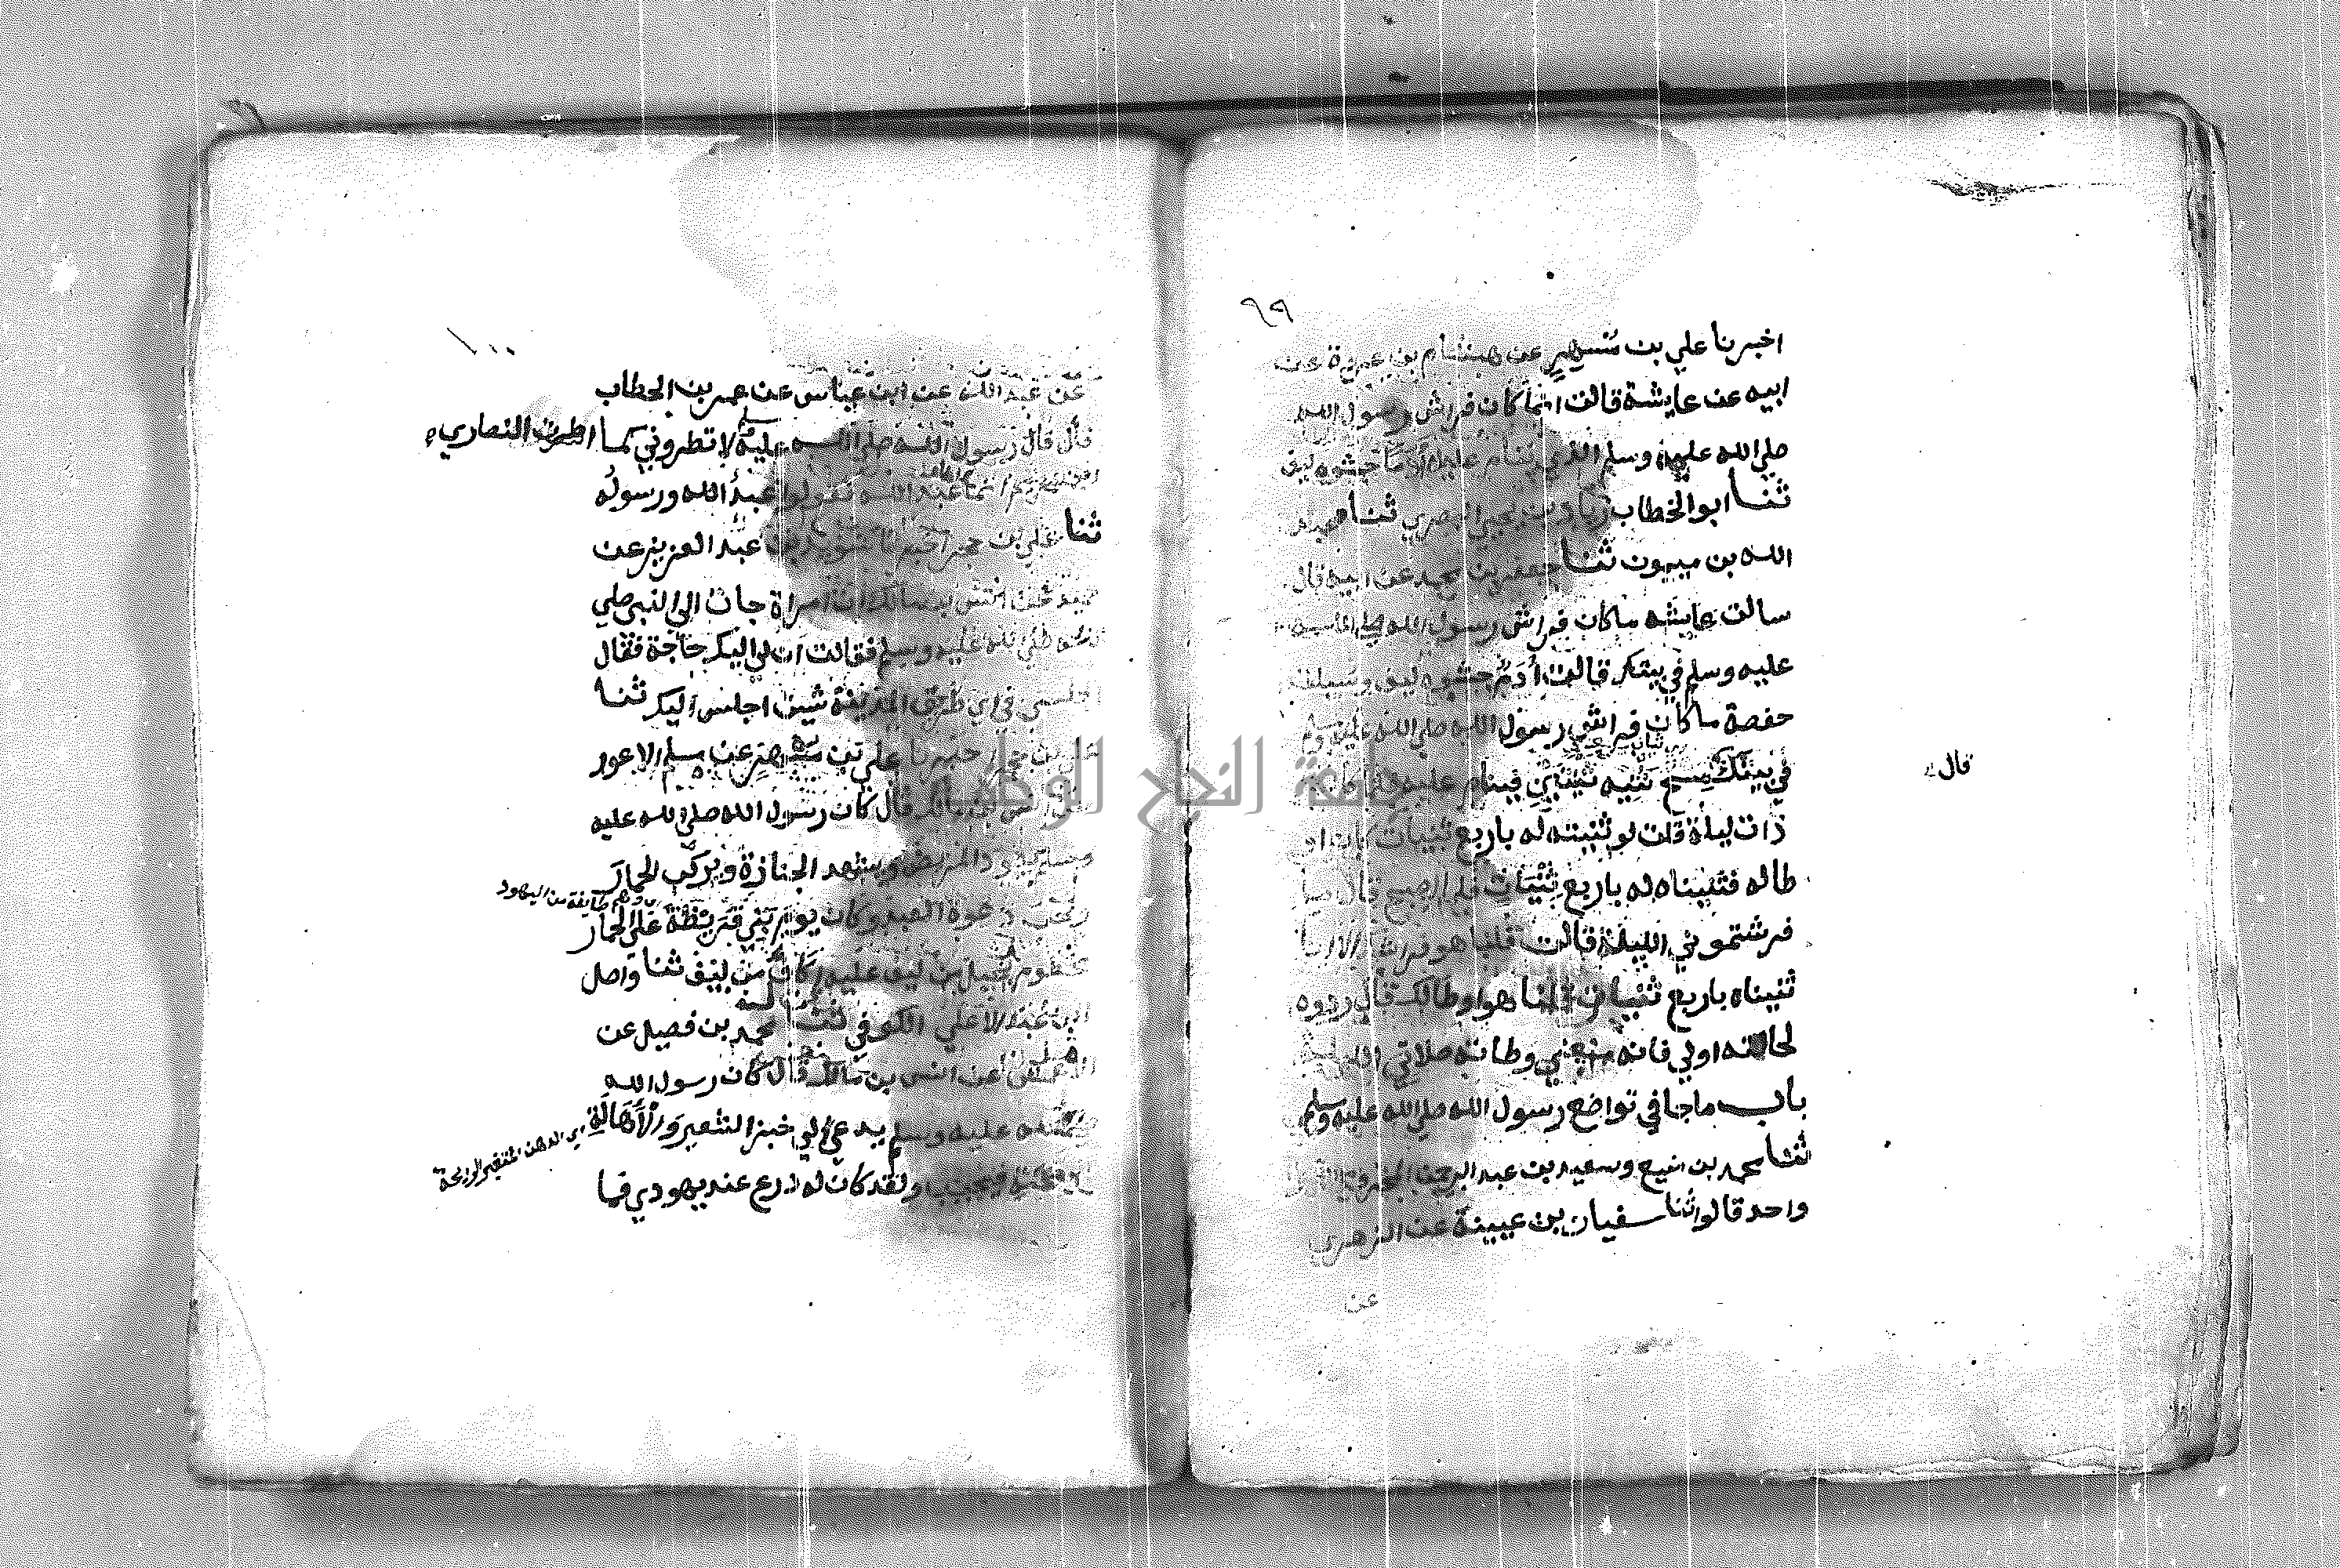 ٦٩
اخبرنا علي بن مسهر عن هشام بن عروة عن
ابيه عن عايشة قالت انما كان فراش رسول الله
صلي الله عليه وسلم الذي ينام عليه أدما حشوه ليف
ثنا ابو الخطاب زياد بن يحيي البصري ثنا عبد
الله بن ميمون ثنا جعفر بن محمد عن ابيه قال
سالت عايشه ماكان فراش رسول الله صلي الله
عليه وسلم في بيتك قالت أدم حشوه ليف وسيلت
حفصة ماكان فراش رسول الله صلي الله عليه وسلم
في بيتك مسح نثنيه ثنيتين فينام عليه فلما كان
قال
ذات ليلة قلت لو ثنيته له باربع ثنيات كان او
طاله فثنيناه له باربع ثنيات فلما اصبح قال ما
فرشتموني الليلة قالت قلنا هو فراشك الا انا
ثنيناه باربع ثنيات قلنا هو اوطالك قال ردوه
لحالته اولي فانه منعني وطاته صلاتي الليلة
باب ماجا في تواضع رسول الله صلي الله عليه وسلم
ثنا محمد بن منيع وسعيد بن عبد الرحمن المخزومي
واحد قالوا ثنا سفيان بن عيينة عن الزهري
عن
١٠٠
عن عبد الله عن ابن عباس عن عمر بن الخطاب
قال قال رسول الله صلي الله عليه وسلم لا تطروني كما اطرت النصاري
انما عبد الله فقولوا عبد الله ورسوله
ثنا علي بن حجر اخبرنا سويد بن عبد العزيز عن
حميد عن انس بن مالك ان امراة جات الي النبي صلي
الله عليه وسلم فقالت ان لي اليك حاجة فقال
اجلسي في اي طريق المدينة شيت اجلس اليك ثنا
علي بن حجر اخبرنا علي بن مسهر عن مسلم الاعور
عن انس بن مالك قال كان رسول الله صلي الله عليه
وسلم يعود المريض ويشهد الجنازة ويركب الحمار
وهم طايفة من اليهود
دعوة العبد وكان يوم بني قريظة علي الحمار
مخطوم بحبل من ليف عليه اكاف من ليف ثنا واصل
ابن عبد الاعلي الكوفي ثنا محمد بن فضيل عن
الاعمش عن انس بن مالك قال كان رسول الله
صلي الله عليه وسلم يدعي الي خبز الشعير والاهالة
اي الدهن المتغير الرايحة
فيجيب ولقد كان له درع عند يهودي فما